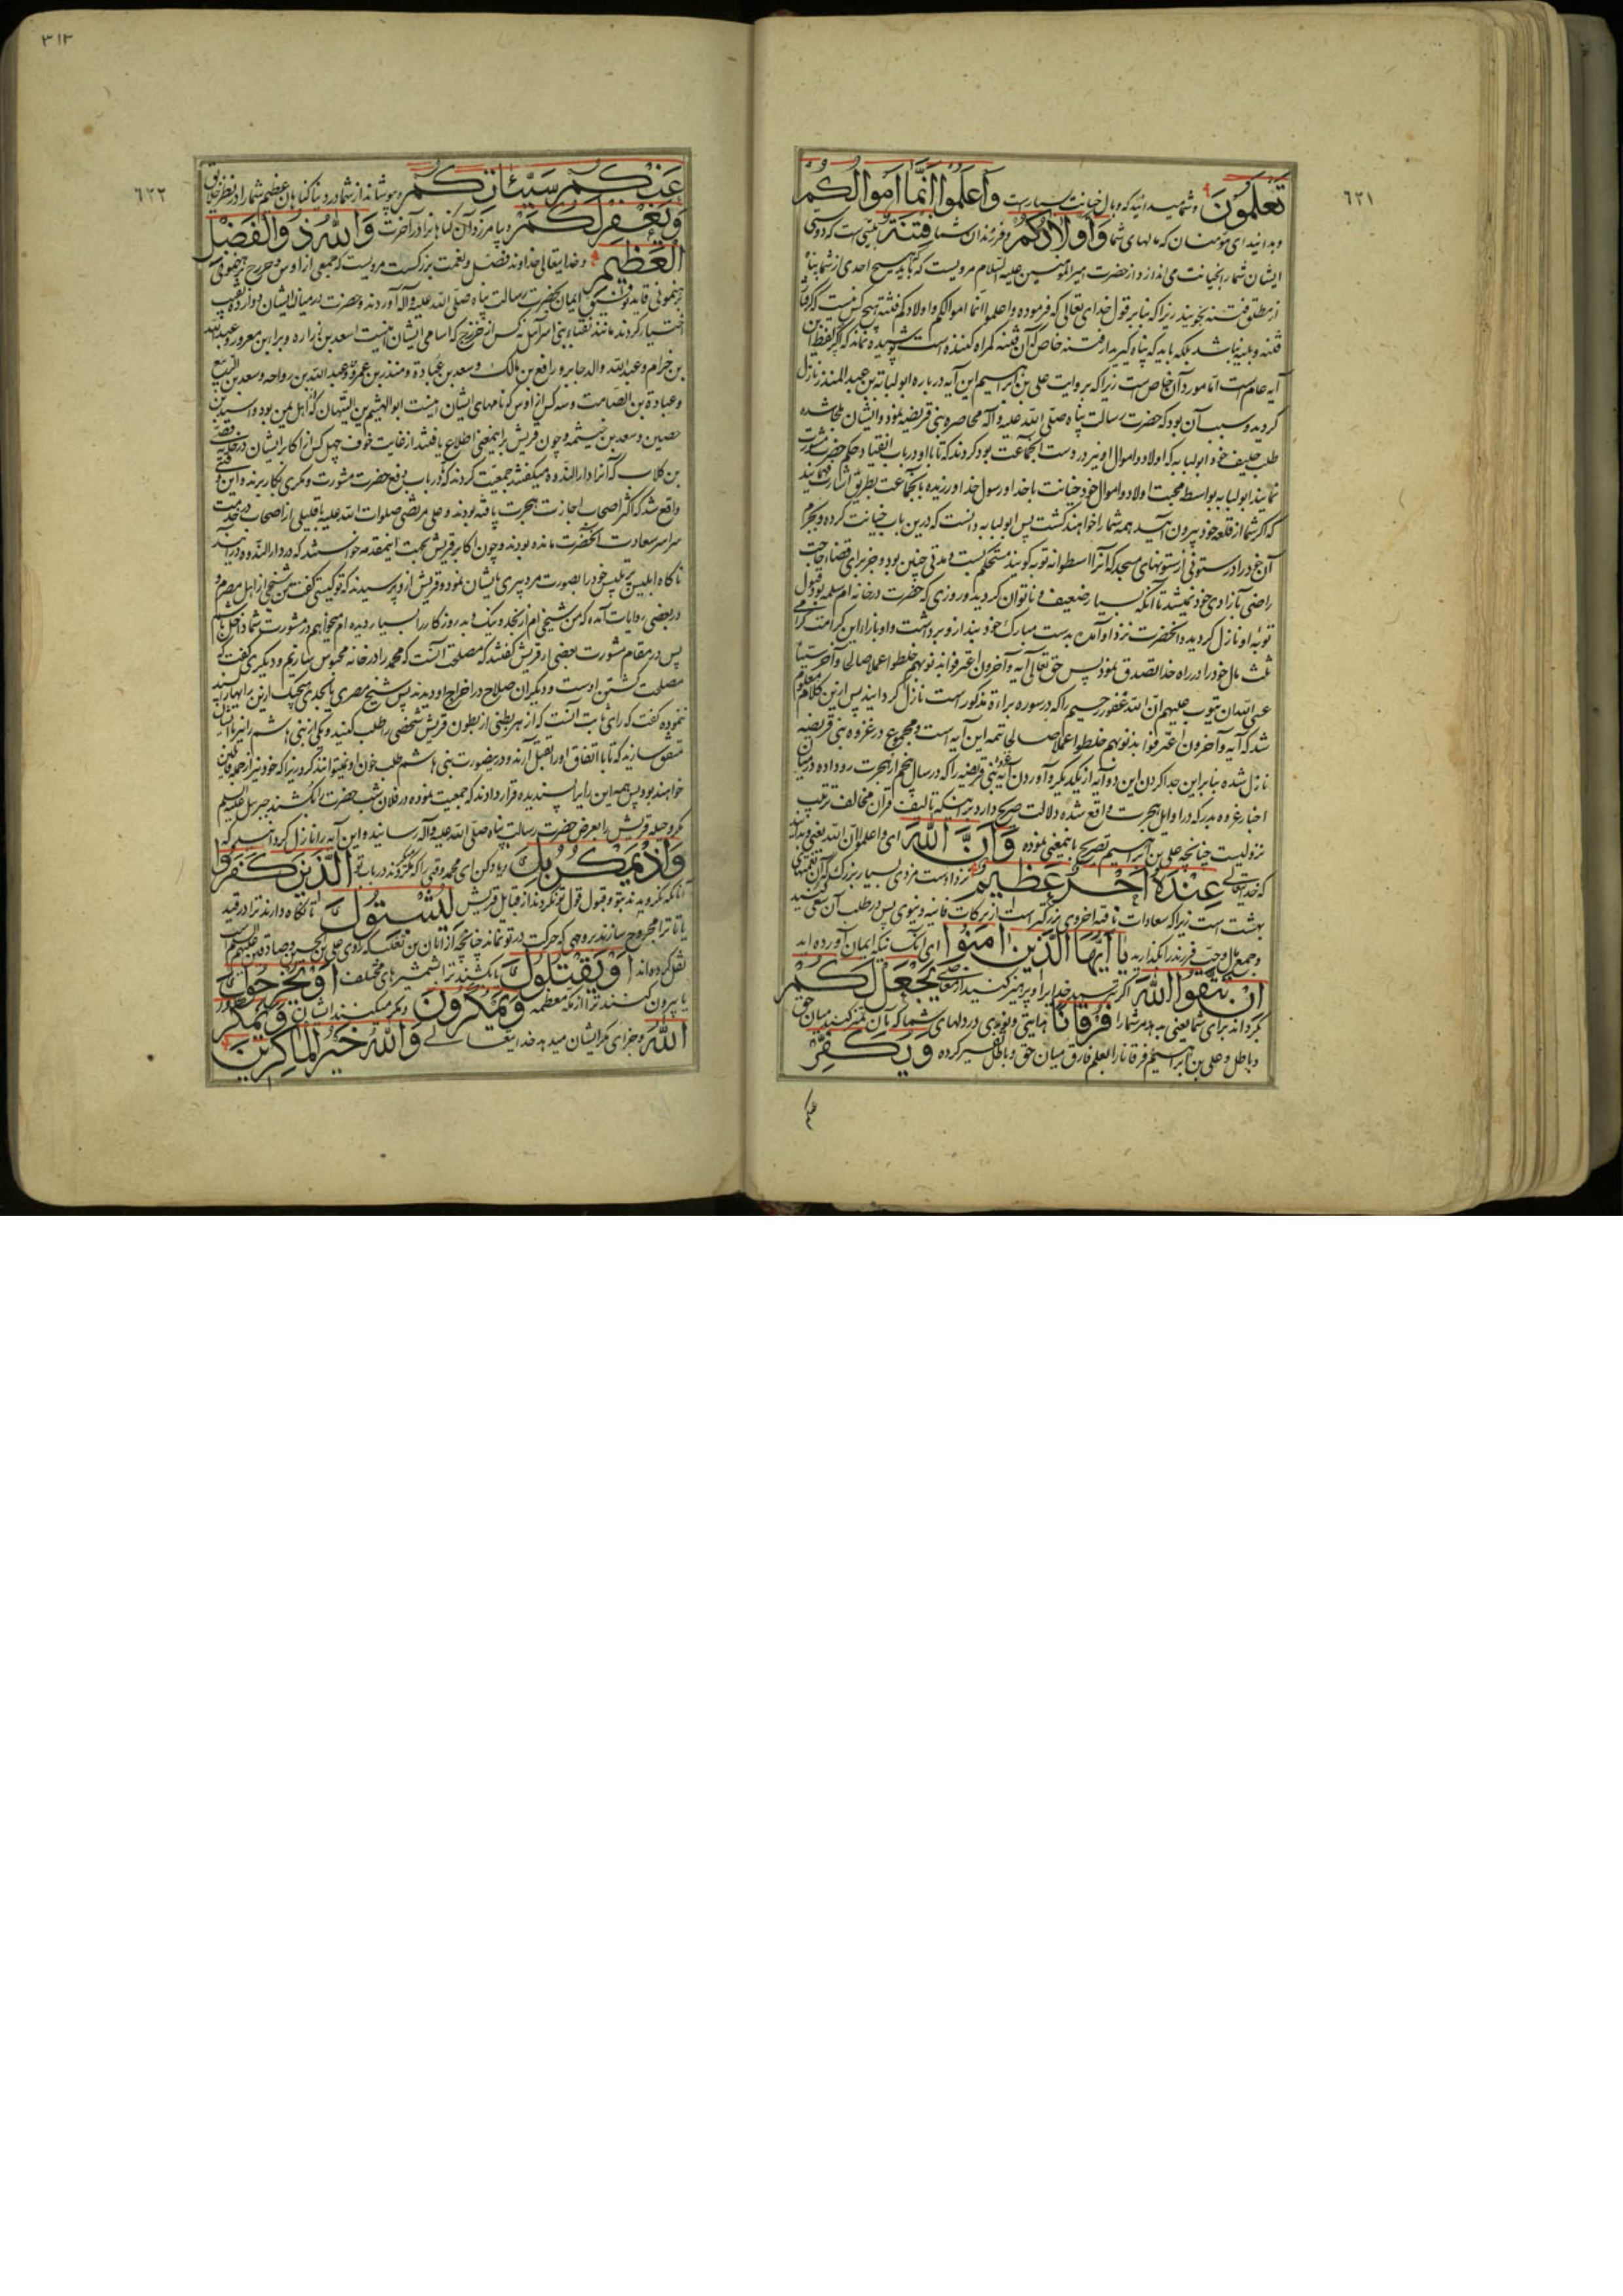 ٦٢١
تعلمون و شما میدانید که وبال خیانت بسیارست واعلموا انما اموالکم
و بدانید ای مؤمنان که مالهای شما و اولادکم و فرزندان شما فتنة است که دوستی
ایشان شما را بخیانت می اندازد و از حضرت امیرالمؤمنین علیه السلام مرویست که باید هیچ احدی از شما پناه
از مطلق فتنه نجویند زیرا که بنا بر قول خدای تعالی که فرموده واعلموا انما اموالکم و اولادکم فتنة هیچ کس نیست که
فتنه و بلیه نباشد بلکه باید که پناه گیرید از فتنه خاص که آن فتنه گمراه کننده است پوشیده نماند که اگر لفظ این
آیه عام است اما مورد آن خاص است زیرا که بروایت علی بن ابراهیم این آیه در باره ابو لبابة بن عبد المنذر نازل
گردید و سبب آن بود که حضرت رسالت پناه صلی الله علیه و آله محاصره بنی قریضه نمود و ایشان
طلب حلیف خود ابو لبابه که اولاد و اموال او نیز در دست آنجماعت بود کردند که تا با او در باب انقیاد حکم حضرت مشورت
نمایند ابو لبابه بواسطه محبت اولاد و اموال خود خیانت با خدا و رسول خدا ورزیده با آنجماعت بطریق اشارت
که اگر شما از قلعه خود بیرون آیید همه شما را خواهند کشت پس ابو لبابه دانست که درین باب خیانت کرده
آن خود را در ستونی از ستونهای مسجد که آنرا اسطوانه توبه گویند مستحکم بست و مدتی چنین بود و جز برای قضاء حاجت
راضی بآزادی خود نمیشد تا آنکه بسیار ضعیف و ناتوان گردید و روزی که حضرت در خانه ام سلمه بود قبول
توبه او نازل گردید و آنحضرت نزد او آمده بدست مبارک خود بند از و برداشت و او بنا بر این کرامت
ثلث مال خود را در راه خدا تصدق نمود پس حق تعالی آیه و آخرون اعترفوا بذنوبهم خلطوا عملا صالحا و آخر سیئا
عسی الله ان یتوب علیهم ان الله غفور رحیم را که در سوره براءة مذکور است نازل گردانید پس ازین کلام معلوم
شد که آیه و آخرون اعترفوا بذنوبهم خلطوا عملا صالحا تتمه این آیه است و مجموع در غزوه بنی قریضه
نازل شده بنا بر این جدا کردن این دو آیه از یکدیگر و آوردن آیه بنی قریضه را که در سال پنجم از هجرت رو داده در میان
اخبار غزوه بدر که در اوایل هجرت واقع شده دلالت صریح دارد بر اینکه تالیف قرآن مخالف ترتیب
نزولیست چنانچه علی بن ابراهیم تصریح باینمعنی نموده وان الله ای واعلموا ان الله یعنی و بدانید
که خدایتعالی عنده اجر عظیم نزد اوست مزدی بسیار بزرگ که آن
بهشت است زیرا که سعادات باقیه اخروی بزرگتر است از برکات فانیه دنیوی پس در طلب آن سعی کنید
و جمع مال و حب فرزند را بگذارید یا ایها الذین امنوا ای آنکسانیکه ایمان آورده اید
ان تتقوا الله اگر بترسید خدایرا و پرهیز کنید از معاصی یجعل لکم
بگرداند برای شما یعنی بدهد مر شما را فرقانا هدایتی و نوری در دلهای شما که بآن تمیز کنید میان حق
و باطل و علی بن ابراهیم فرقانا را بعلم فارق میان حق و باطل تفسیر کرده ویکفر
٣١٢
٦٢٢
عنکم سیئاتکم و بپوشاند از شما در دنیا گناهان عظیم شما را از نظر خلایق
ویغفر لکم و بیامرزد آن گناهانرا در آخرت والله ذو الفضل
العظیم و خدایتعالی خداوند فضل و نعمت بزرگست مرویست که جمعی از اوس و خزرج
ایمان بحضرت رسالت پناه صلی الله علیه و آله آوردند و حضرت در میان ایشان دوازده نقیب
اختیار کردند مانند نقباء بنی اسرائیل نه کس از خزرج که اسامی ایشان اینست اسعد بن زراره و براء بن معرور و عبدالله
بن حرام و عبدالله والد جابر و رافع بن مالک و سعد بن عباده و منذر بن عمرو و عبدالله بن رواحه و سعد بن الربیع
و عبادة بن الصامت و سه کس از اوس که نامهای ایشان اینست ابو الهیثم بن التیهان که از اهل یمن بود و اسید بن
حصین و سعد بن خیثمه و چون قریش بر اینمعنی اطلاع یافتند از غایت خوف چهل کس از اکابر ایشان در خانه قصی
بن کلاب که آنرا دار الندوه میگفتند جمعیت کردند که در باب دفع حضرت مشورت و مکری بکار برند و این وقتی
واقع شد که اکثر اصحاب اجازت هجرت یافته بودند و علی مرتضی صلوات الله علیه با قلیلی از اصحاب در خدمت
سراسر سعادت آنحضرت مانده بودند و چون اکابر قریش بجهت اینمقدمه خواستند که در دار الندوه درآیند
ناگاه ابلیس پر تلبیس خود را بصورت مرد پیری بایشان نمود و قریش ازو پرسیدند که تو کیستی گفت من شیخی از اهل مصرم و
در بعضی روایات آمده که من شیخی ام از نجد و نیک و بد روزگار را بسیار دیده ام میخواهم در مشورت شما داخل باشم
پس در مقام مشورت بعضی از قریش گفتند که مصلحت آنست که محمد را در خانه محبوس سازیم و دیگری گفت که
مصلحت کشتن اوست و دیگران صلاح در اخراج او دیدند پس شیخ مصری یا نجدی هیچیک ازین رایها را پسند
ننموده گفت که رای ثابت آنست که از هر بطنی از بطون قریش شخصی را طلب کنید و یکی از بنی هاشم را نیز با ایشان
متفق سازید که تا با اتفاق او را بقتل آرند و درینصورت بنی هاشم طلب خون او نمیتوانند کرد زیرا که خود نیز از جمله قاتلین
خواهند بود پس همه این رایرا پسندیده قرار دادند که جمعیت نموده در فلان شب حضرت را بکشند جبرئیل علیه السلام
مکر و حیله قریش را بعرض حضرت رسالت پناه صلی الله علیه و آله رسانید و این آیه را نازل گردانید که
واذ یمکر بک و یاد کن ای محمد وقتی را که مکر کردند در باب تو الذین کفروا
آنانکه نگرویدند بتو و قبول قول تو نکردند از قبایل قریش لیثبتوک تا نگاه دارند ترا در قید
یا تا ترا مجروح سازند بروجهی که حرکت در تو نماند چنانچه از ابان بن تغلب که راوی علی بن الحسین و صادقین علیهم السلام است
نقل کرده اند او یقتلوک یا بکشند ترا بشمشیرهای مختلف او یخرجوک
یا بیرون کنند ترا از مکه معظمه ویمکرون و مکر میکنند ایشان ویمکر
الله و جزای مکر ایشان میدهد خدایتعالی والله خیر الماکرین